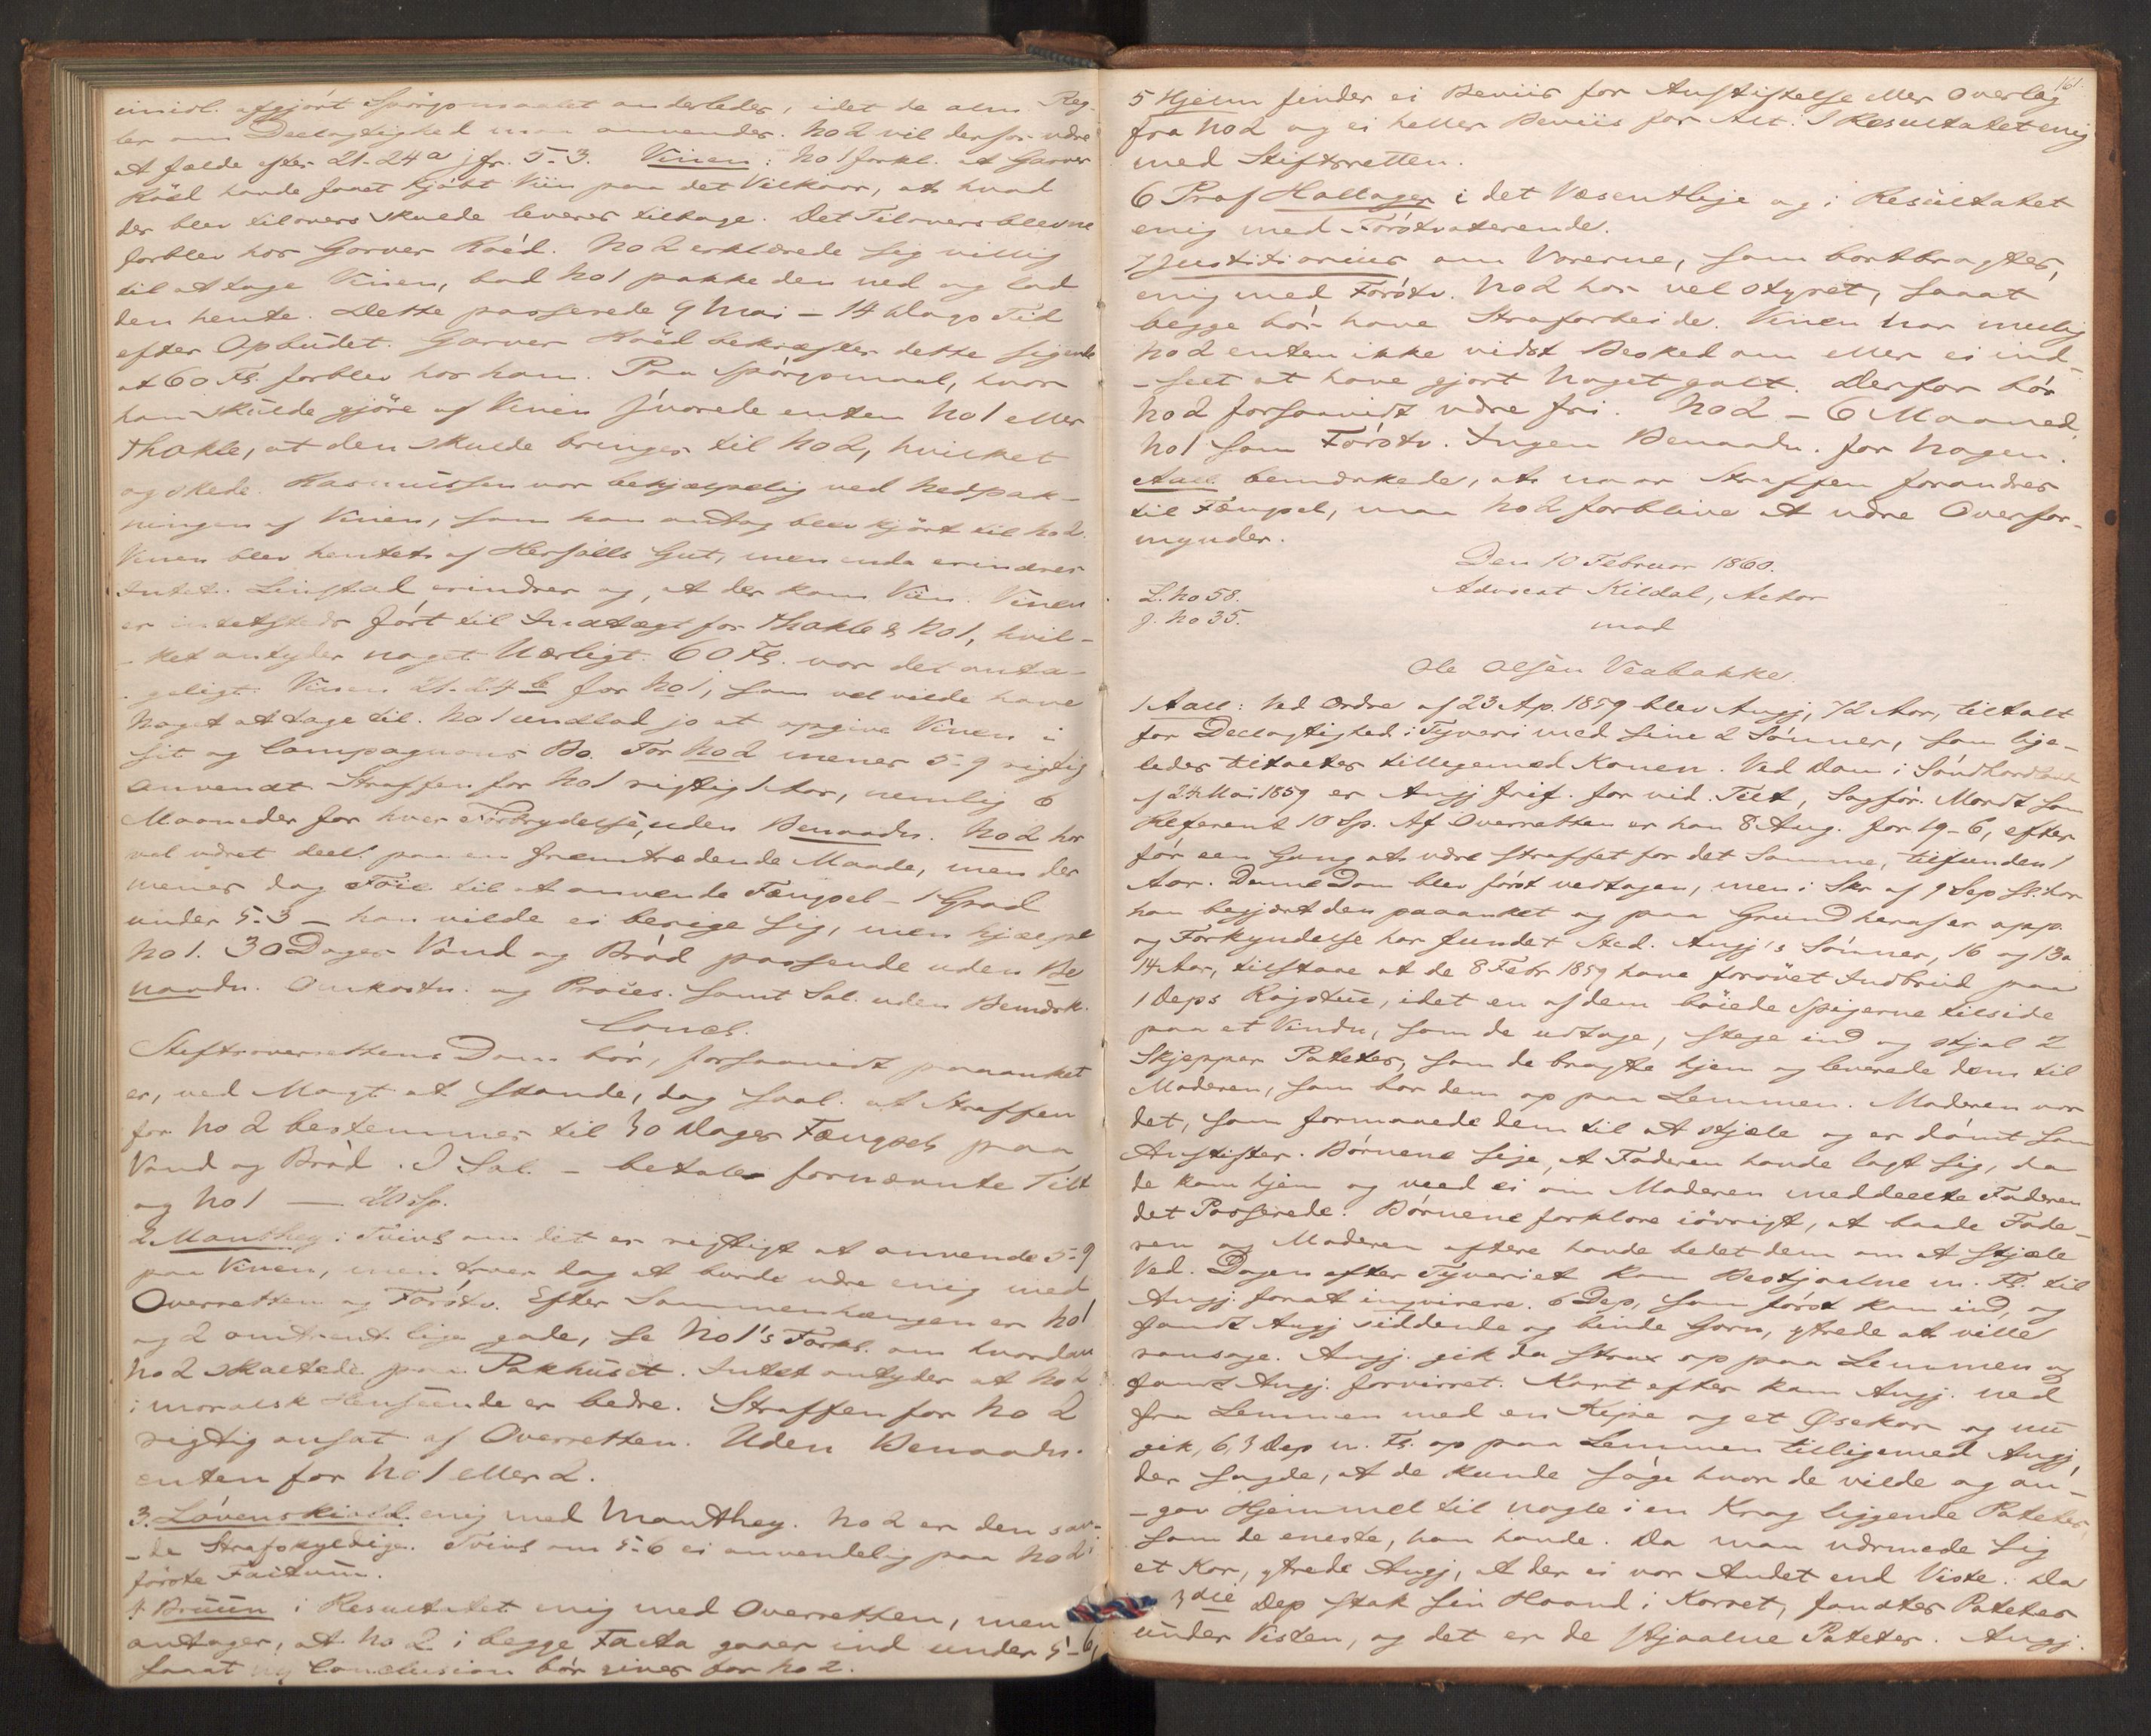 imidl. afgjørt Spørgsmaalet anderledes, idet de alm Reg-
ler om Deelagtighed maa anvendes. No 2 vil derfor være
at fælde efter 21-24 a jfr. 5-3. Vinen: No 1 forkl. at Garver
Röed havde faaet kjøbt Viin paa det Vilkaar, at hvad
der blev tilovers skulde leveres tilbage. Det Tiloversblevne
forblev hos Garver Röed. No 2 erklærede sig villig
til at tage Vinen, bad No 1 pakke den ned og lod
den hente. Dette passerede 9 Mai - 14 Dags Tid
efter Opbudet. Garver Röed bekræfter dette sigende
at 60 Fl. forblev hos ham. Paa Spørgsmaal, hvor
han skulde gjöre af Vinen svarede enten No 1 eller
Thakle, at den skulde bringes til No 2, hvilket
og skede. Rasmussen var behjælpelig ved Nedpak-
ningen af Vinen, som han antog blev kjørt til No 2.
Vinen blev hentet af Herfalls Gut, men enda erindrer
Intet. Linstad erindrer og, at der kom Viin. Vinen
er intetsteds ført til Indtægt for Thakle & No 1, hvil-
-ket antyder noget Uærligt. 60 Fl. var det anta-
geligt. Vinen 21-24 b for No 1, som vel vilde have
Noget at tage til. No 1 undlod jo at opgive Vinen i
sit og Compagnons Bo. For No 2 mener 5-9 rigtig
anvendt. Straffen for No 1 rigtig 1 Aar, nemlig 6
Maaneder for hver Forbrydelse, uden Benaadn. No 2 har
vel været deel. paa en fremtrædende Maade, men der
menes dog Föie til at anvende Fængsel - 1 Grad
under 5-3 - han vilde ei berige sig, men hjælpe
No 1. 30 Dages Vand og Brød passende uden Be
naadn. Omkostn. og Proces. samt Sal. uden Bemærk.
Concl.
Stiftsoverrettens Dom bør, forsaavidt paaanket
er, ved Magt at stande, dog saal. at Straffen
for No 2 bestemmes til 30 Dages Fængsel paa
Vand og Brød. I Sal. - betaler fornævnte Tilt
og No 1 — 20 Sp.
2. Manthey: Tvivl om det er rigtigt at anvende 5-9
paa Vinen, men troer dog at burde være enig med
Overretten og Førstv. Efter Sammenhængen er No 1
og 2 omtrent lige gode, se No 1's Forkl. om hvordan
No 2 skaltede paa Pakhuset. Intet antyder at No 2
i moralsk Henseende er bedre. Straffen for No 2
rigtig ansat af Overretten. Uden Benaadn.
enten for No 1 eller 2.
3. Lövenskiold enig med Manthey. No 2 er den
Strafskyldige. Tvivl om 5-6 ei anvendelig paa No 2 i
første Factum.
4. Bruun i Resultatet enig med Overretten, men
antager, at No 2 i begge Facta gaaer ind under 5-6,
saaat ny Conclusion bør gives for No 2.
161.
5 Hjelm finder ei Beviis for Anstiftelse eller Overlæg
fra No 2 og ei heller Beviis for Alt. I Resultatet enig
med Stiftsretten.
6 Prof Hallager i det Væsentlige og i Resultatet
enig med Førstvoterende.
7 Justitiarius om Varerne, som bortbragtes,
enig med Førstv. No 2 har vel styret, saaat
begge bør have Strafarbeide. Vinen har muelig
No 2 enten ikke vidst Besked om eller ei ind-
-seet at have gjort Noget galt. Derfor bør
No 2 forsaavidt være fri. No 2 - 6 Maaned.
No 1 som Førstv. Ingen Benaadn. for Nogen.
Aall bemærkede, at naar Straffen forandres
til Fængsel, maa No 2 forblive at være Overfor-
mynder.
Den 10 Februar 1860.
L. No 58. Advocat Kildal, Actor
J. No 35. mod
Ole Olsen Veabakke.
1 Aall: Ved Ordre af 23 Ap. 1859 blev Angj, 72 Aar, tiltalt
for Deelagtighed i Tyveri med sine 2 Sønner, som lige-
ledes tiltaltes tilligemed Konen. Ved Dom i Søndhordland
af 24 Mai 1859 er Angj frif. for vid. Tilt, Sagfør. Mordt som
Referent 10 Sp. Af Overretten er han 8 Aug. for 19-6, efter
før een Gang at være straffet for det Samme, tilfunden 1
Aar. Denne Dom blev først vedtagen, men i Skr af 9 Sep. sk. har
han begjært den paaanket og paa Grund heraf er app.
og Forkyndelse har fundet Sted. Angj's Sønner, 16 og 13 a
14 Aar, tilstaae at de 8 Febr 1859 have forøvet Indbrud paa
1 Deps Røgstue, idet en af dem bøiede Spigerne tilside
paa et Vindu, som de udtoge, stege ind og stjal 2
Skjepper Poteter, som de bragte hjem og leverede dem til
Moderen, som bar dem op paa Lemmen. Moderen var
det, som formanede dem til at stjæle og er dømt som
Anstifter. Børnene sige, at Faderen havde lagt sig, da
de kom hjem og veed ei om Moderen meddeelte Faderen
det Passerede. Børnene forklare iøvrigt, at baade Fade-
ren og Moderen oftere havde bedet dem om at stjæle
Ved. Dagen efter Tyveriet kom Bestjaalne m. Fl. til
Angj. forat inqvirere. 6 Dep, som først kom ind, og
fandt Angj siddende og binde Garn, yttrede at ville
ransage. Angj. gik da strax op paa Lemmen og
fandt Angj. forvirret. Kort efter kom Angj. ned
fra Lemmen med en Kipe og et Øsekar og nu
gik 6, 3 Dep m. Fl. op paa Lemmen tilligemed Angj,
der sagde, at de kunde søge hvor de vilde og an-
-gav Hjemmel til nogle i en Krog liggende Poteter,
som de eneste, han havde. Da man nærmede sig
et Kar, ytrede Angj, at der ei var Andet end Viste. Da
3die Dep stak sin Haand i Karret, fandtes Poteter
under Visten, og det er de stjaalne Poteter. Angj.